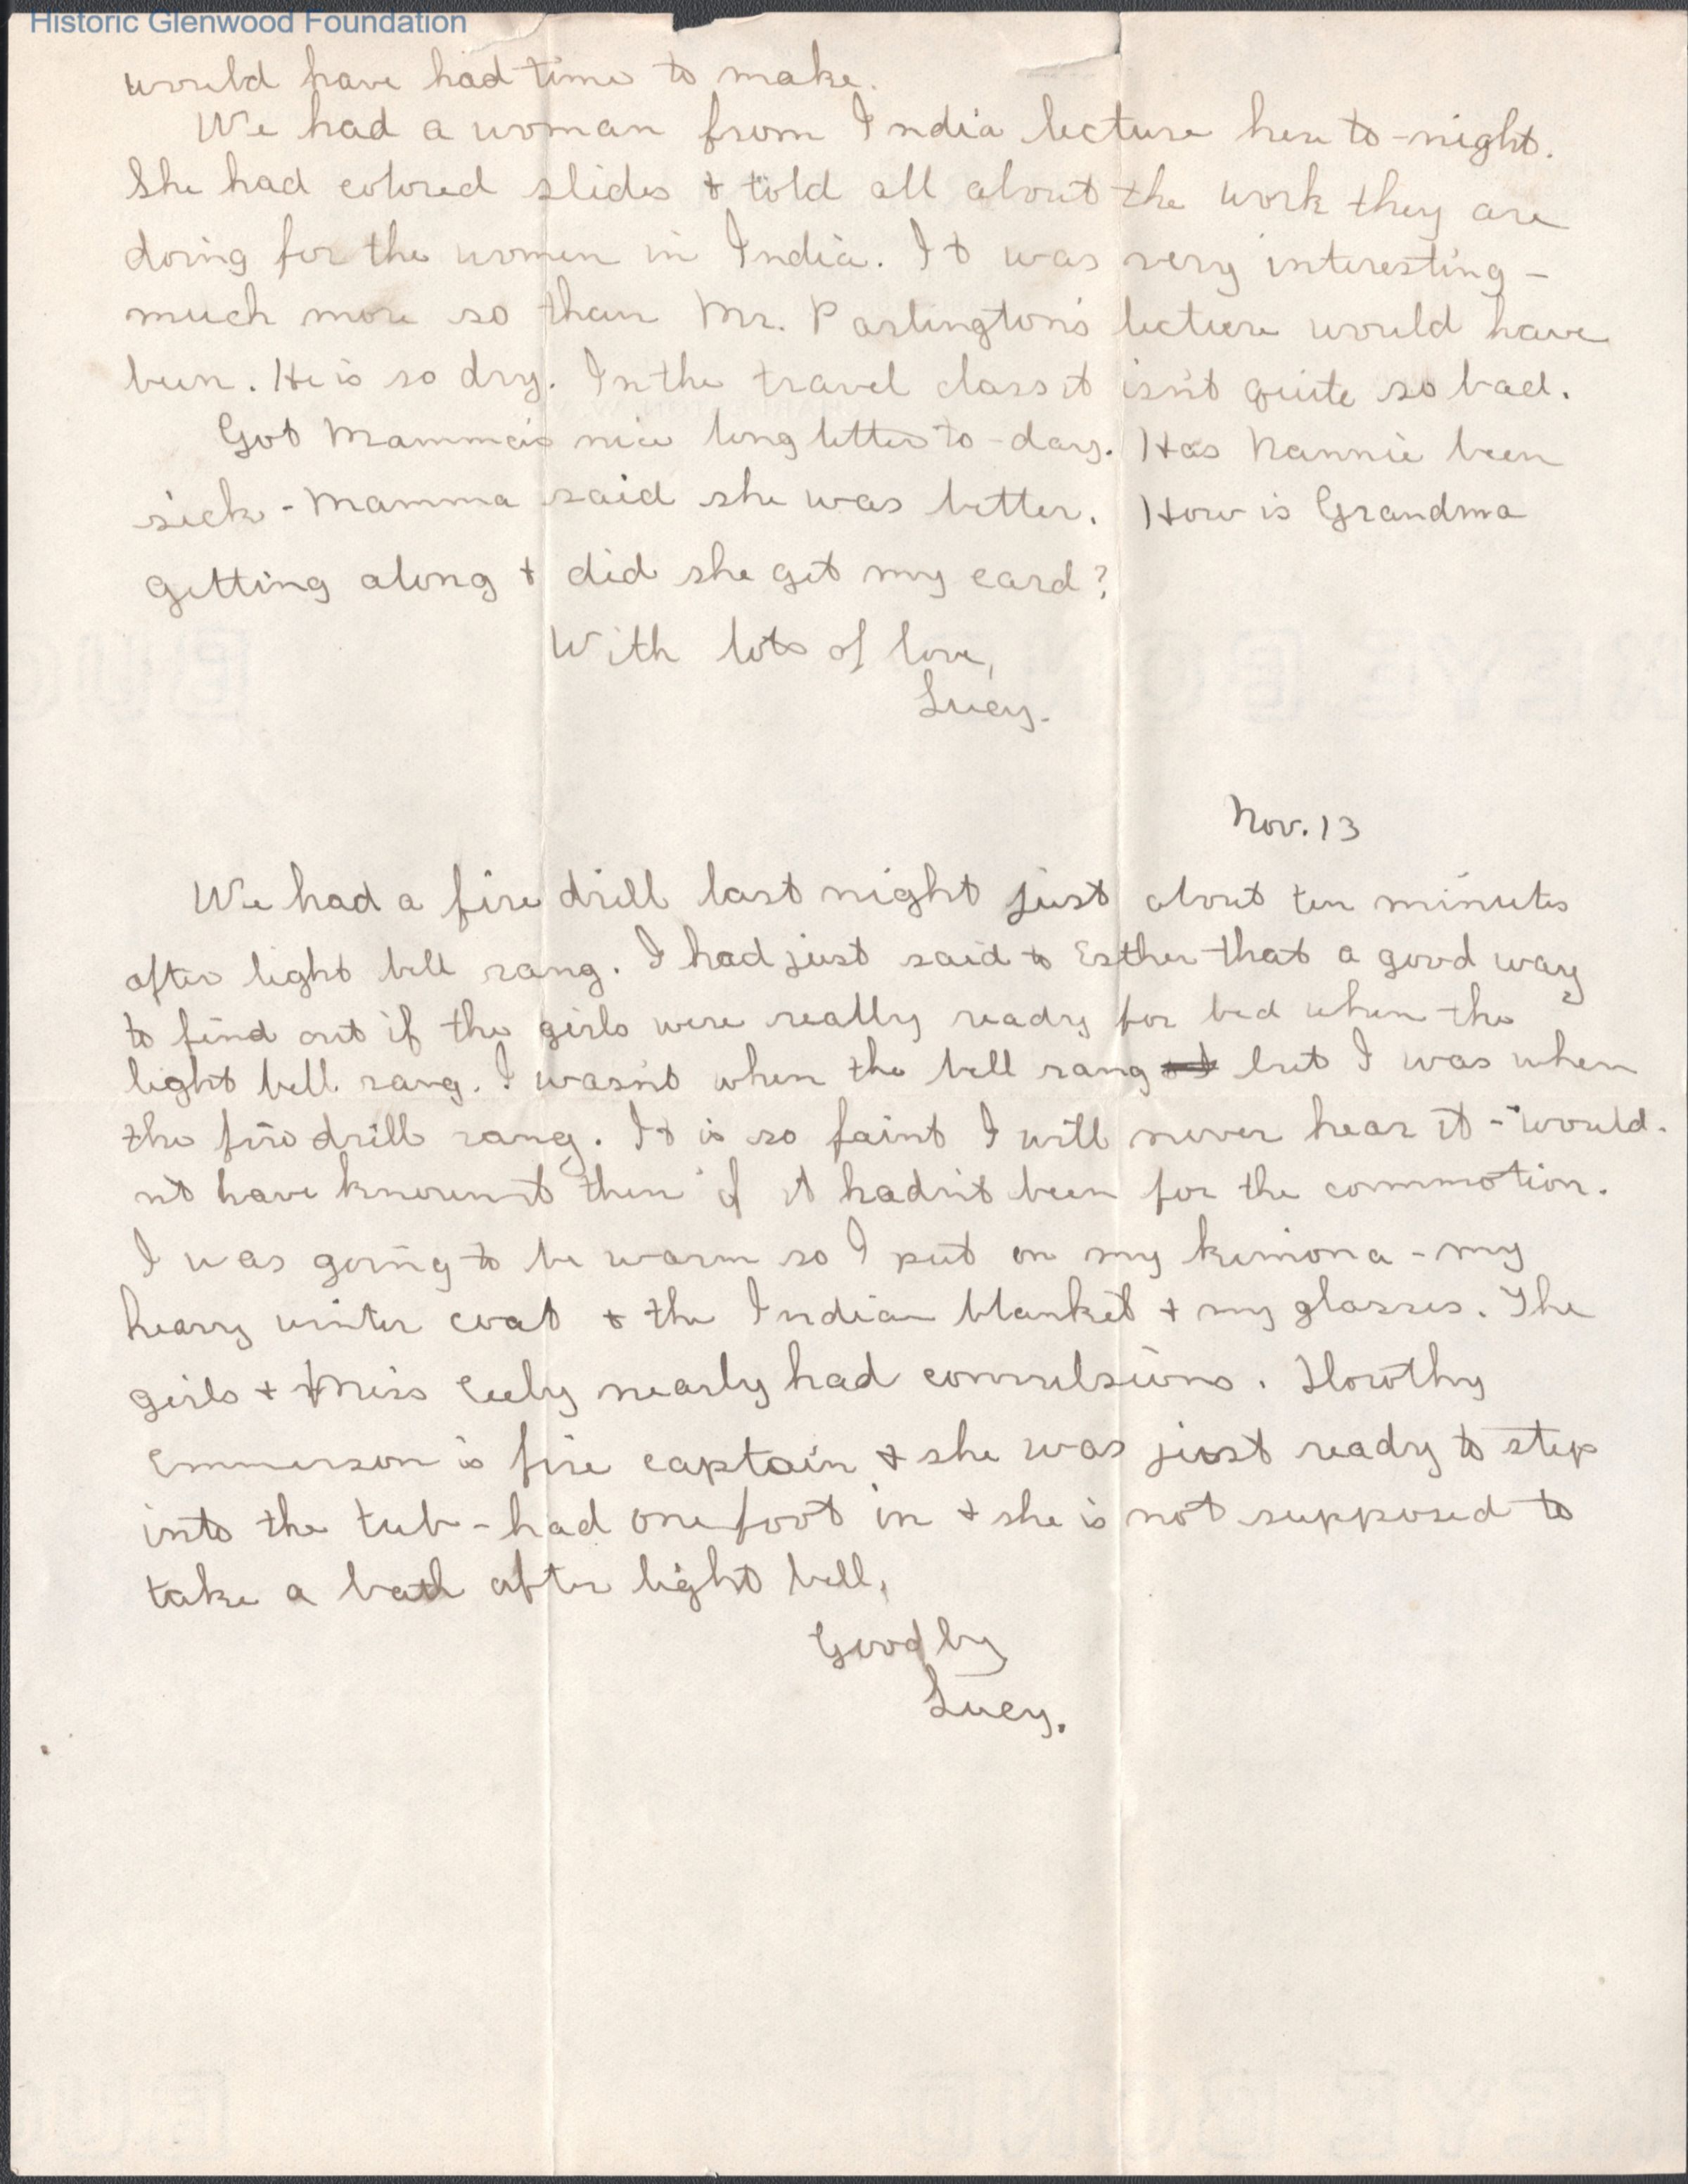 Historic Glenwood Foundation
would have had time to make.
We had a woman from India lecture here to-night.
She had colored slides & told all about the work they are
doing for the women in India. It was very interesting -
much more so than Mr. Partington's lecture would have
been. He is so dry. In the travel class it isn't quite so bad.
Got Mamma's nice long letter to-day. Has Nannie been
sick - Mamma said she was better. How is Grandma
getting along & did she get my card?
With lots of love,
Lucy.
Nov. 13
We had a fire drill last night just about ten minutes
after light bell rang. I had just said to Esther that a good way
to find out if the girls were really ready for bed when the
light bell rang. I wasn't when the bell rang but I was when
the fire drill rang. It is so faint I will never hear it - would-
n't have known it then if it hadn't been for the commotion.
I was going to be warm so I put on my kimona - my
heavy winter coat & the Indian blanket & my glasses. The
girls & Miss nearly had convulsions. Dorothy
Emmerson is fire captain & she was just ready to step
into the tub - had one foot in & she is not supposed to
take a bath after light bell.
Good by
Lucy.